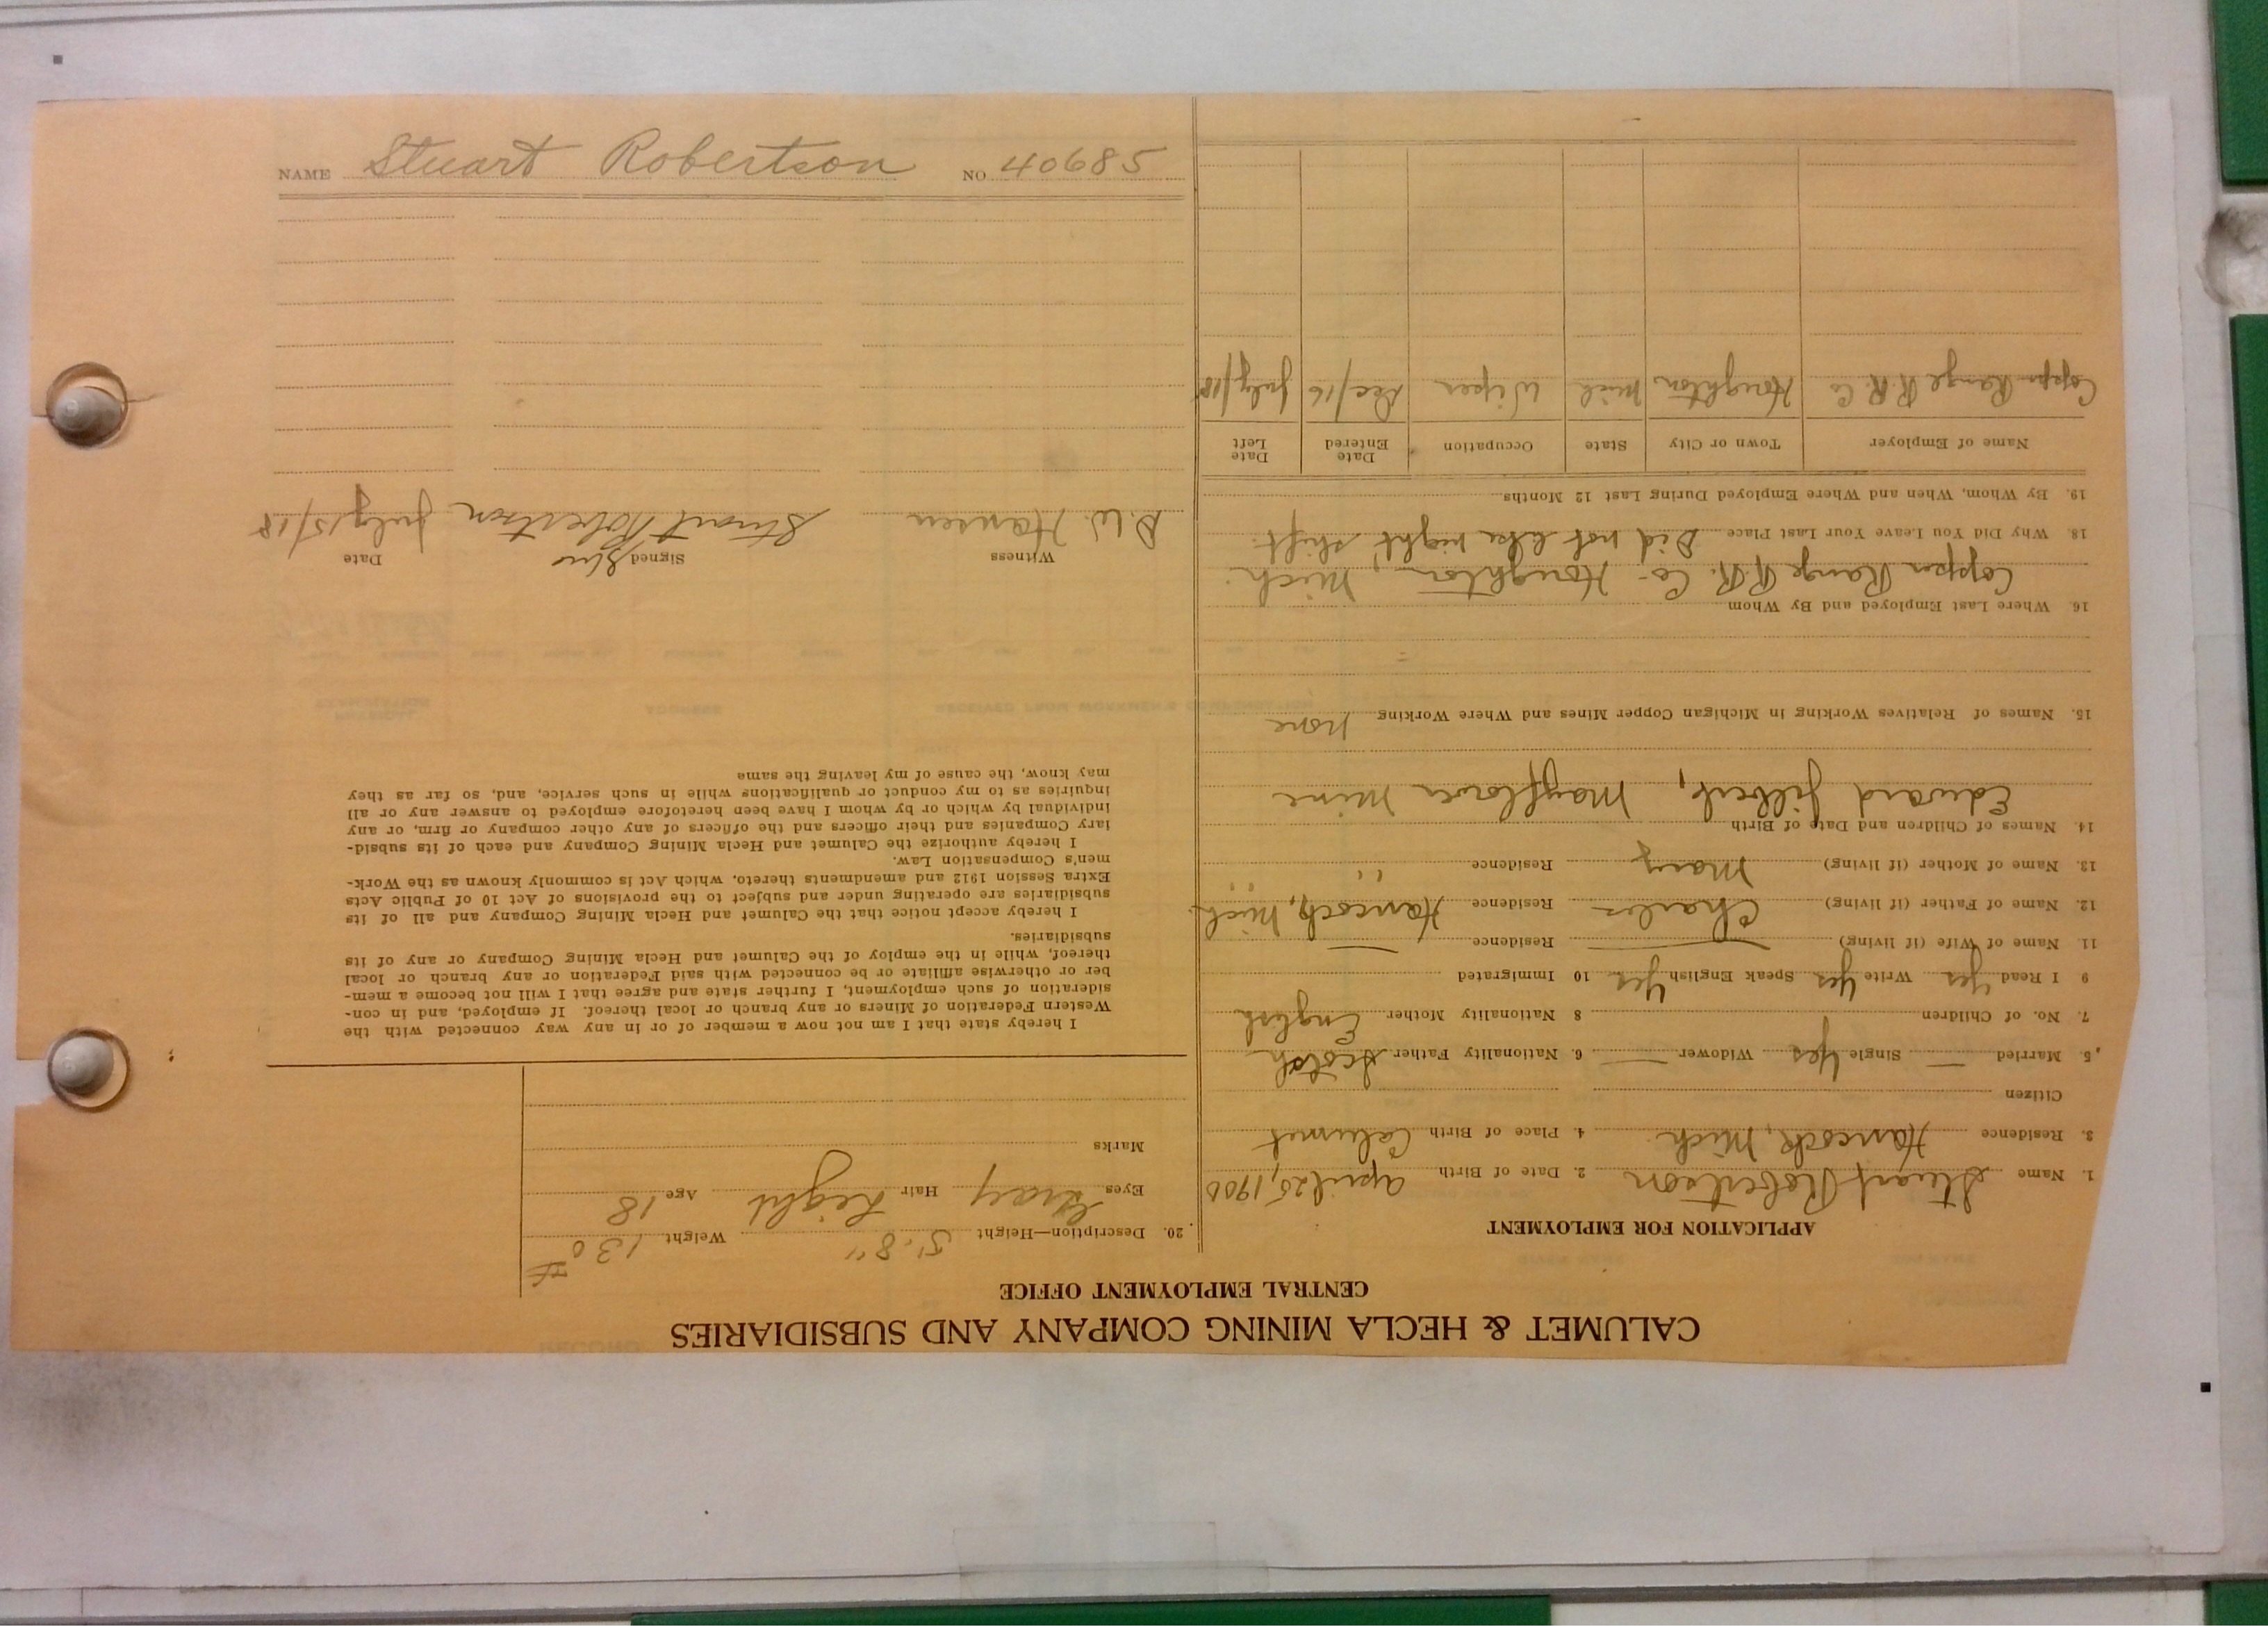 CALUMET & HECLA MINING COMPANY AND SUBSIDIARIES
CENTRAL EMPLOYMENT OFFICE
APPLICATION FOR EMPLOYMENT
1. Name Stuart Robertson 2. Date of Birth April 25, 1900
3. Residence Hancock, Mich. 4. Place of Birth Calumet
Citizen
5. Married — Single Yes Widower — 6. Nationality Father Scotch
7. No. of Children 8 Nationality Mother English
9 I Read Yes Write Yes Speak English Yes 10 Immigrated
11. Name of Wife (if living) — Residence —
12. Name of Father (if living) Charles Residence Hancock, Mich.
13. Name of Mother (if living) Mary Residence " " "
14. Names of Children and Date of Birth
Edward Gilbert, Mayflower Mine
15. Names of Relatives Working in Michigan Copper Mines and Where Working None
16. Where Last Employed and By Whom
Copper Range R.R. Co. Houghton, Mich.
18. Why Did You Leave Your Last Place Did not like night shift.
19. By Whom, When and Where Employed During Last 12 Months
Name of Employer Town or City State Occupation Date Entered Date Left
Copper Range R.R. Co Houghton Mich Wiper Dec/16 July/18
20. Description—Height 5'.8" Weight 130 #
Eyes Gray Hair Light Age 18
Marks
I hereby state that I am not now a member of or in any way connected with the
Western Federation of Miners or any branch or local thereof. If employed, and in con-
sideration of such employment, I further state and agree that I will not become a mem-
ber or otherwise affiliate or be connected with said Federation or any branch or local
thereof, while in the employ of the Calumet and Hecla Mining Company or any of its
subsidiaries.
I hereby accept notice that the Calumet and Hecla Mining Company and all of its
subsidiaries are operating under and subject to the provisions of Act 10 of Public Acts
Extra Session 1912 and amendments thereto, which Act is commonly known as the Work-
men's Compensation Law.
I hereby authorize the Calumet and Hecla Mining Company and each of its subsid-
iary Companies and their officers and the officers of any other company or firm, or any
individual by which or by whom I have been heretofore employed to answer any or all
inquiries as to my conduct or qualifications while in such service, and, so far as they
may know, the cause of my leaving the same
Witness Signed Date
D.W. Hansen Stuart Robertson July 15/18
NAME Stuart Robertson NO. 40685